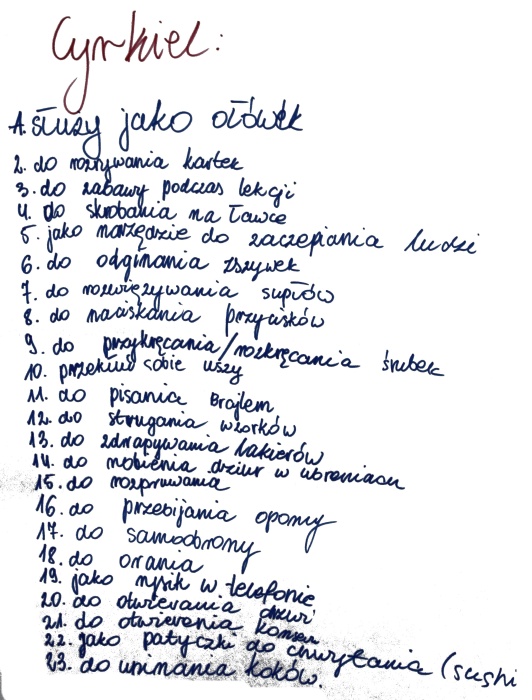 Cyrkiel:
1. służy jako ołówek
2. do rozrywania kartek
3. do zabawy podczas lekcji
4. do skrobania na ławce
5. jako narzędzie do zaczepiania ludzi
6. do odginania zszywek
7. do rozwiązywania supłów
8. do naciskania przycisków
9. do przykręcania/rozkręcania śrubek
10. przekłuć sobie uszy
11. do pisania Brajlem
12. do strugania wzorków
13. do zdrapywania lakierów
14. do robienia dziur w ubraniach
15. do rozpruwania
16. do przebijania opony
17. do samoobrony
18. do orania
19. jako rysik w telefonie
20. do otwierania drzwi
21. do otwierania konserw
22. jako patyczki do chwytania (sushi
23. do upinania koków.